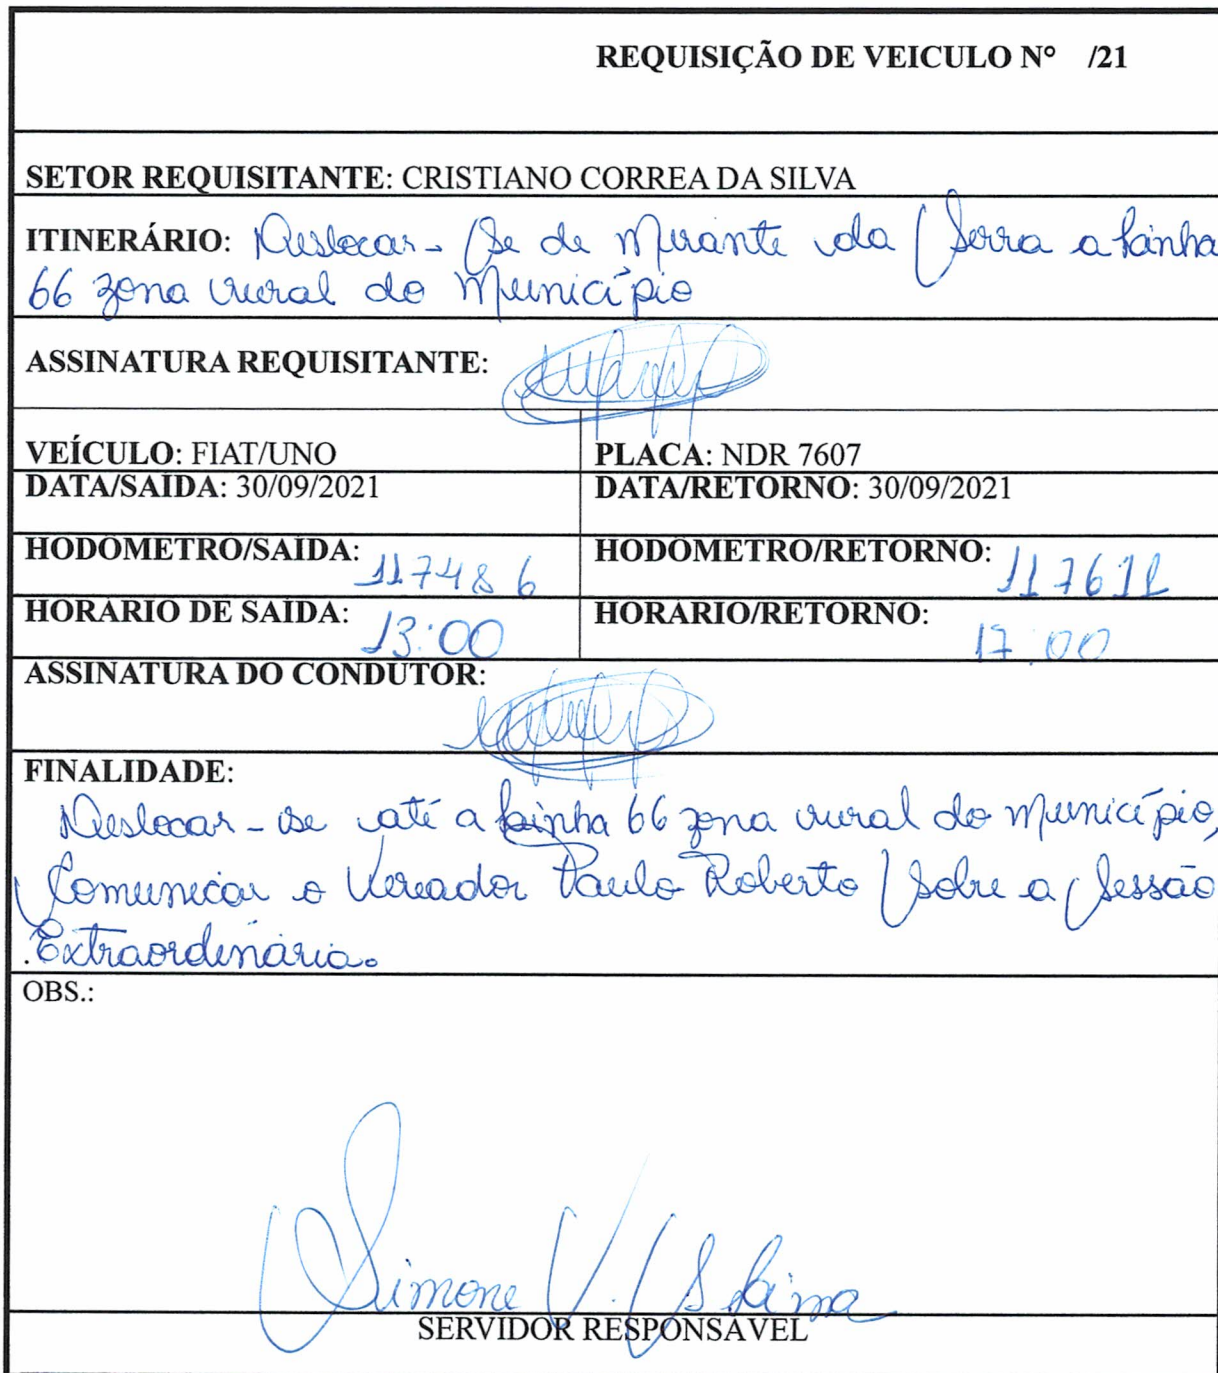 REQUISIÇÃO DE VEICULO N° /21
SETOR REQUISITANTE: CRISTIANO CORREA DA SILVA
ITINERÁRIO: Deslocar-Se de Mirante da Serra a Linha
66 zona rural do Município
ASSINATURA REQUISITANTE:
VEÍCULO: FIAT/UNO PLACA: NDR 7607
DATA/SAÍDA: 30/09/2021 DATA/RETORNO: 30/09/2021
HODÔMETRO/SAÍDA: 117486 HODÔMETRO/RETORNO: 117611
HORÁRIO DE SAÍDA: 13:00 HORÁRIO/RETORNO: 17:00
ASSINATURA DO CONDUTOR:
FINALIDADE:
Deslocar-se até a Linha 66 zona rural do Município,
Comunicar o Vereador Paulo Roberto Sobre a Sessão
Extraordinária.
OBS.:
Simone V. S Lima
SERVIDOR RESPONSÁVEL